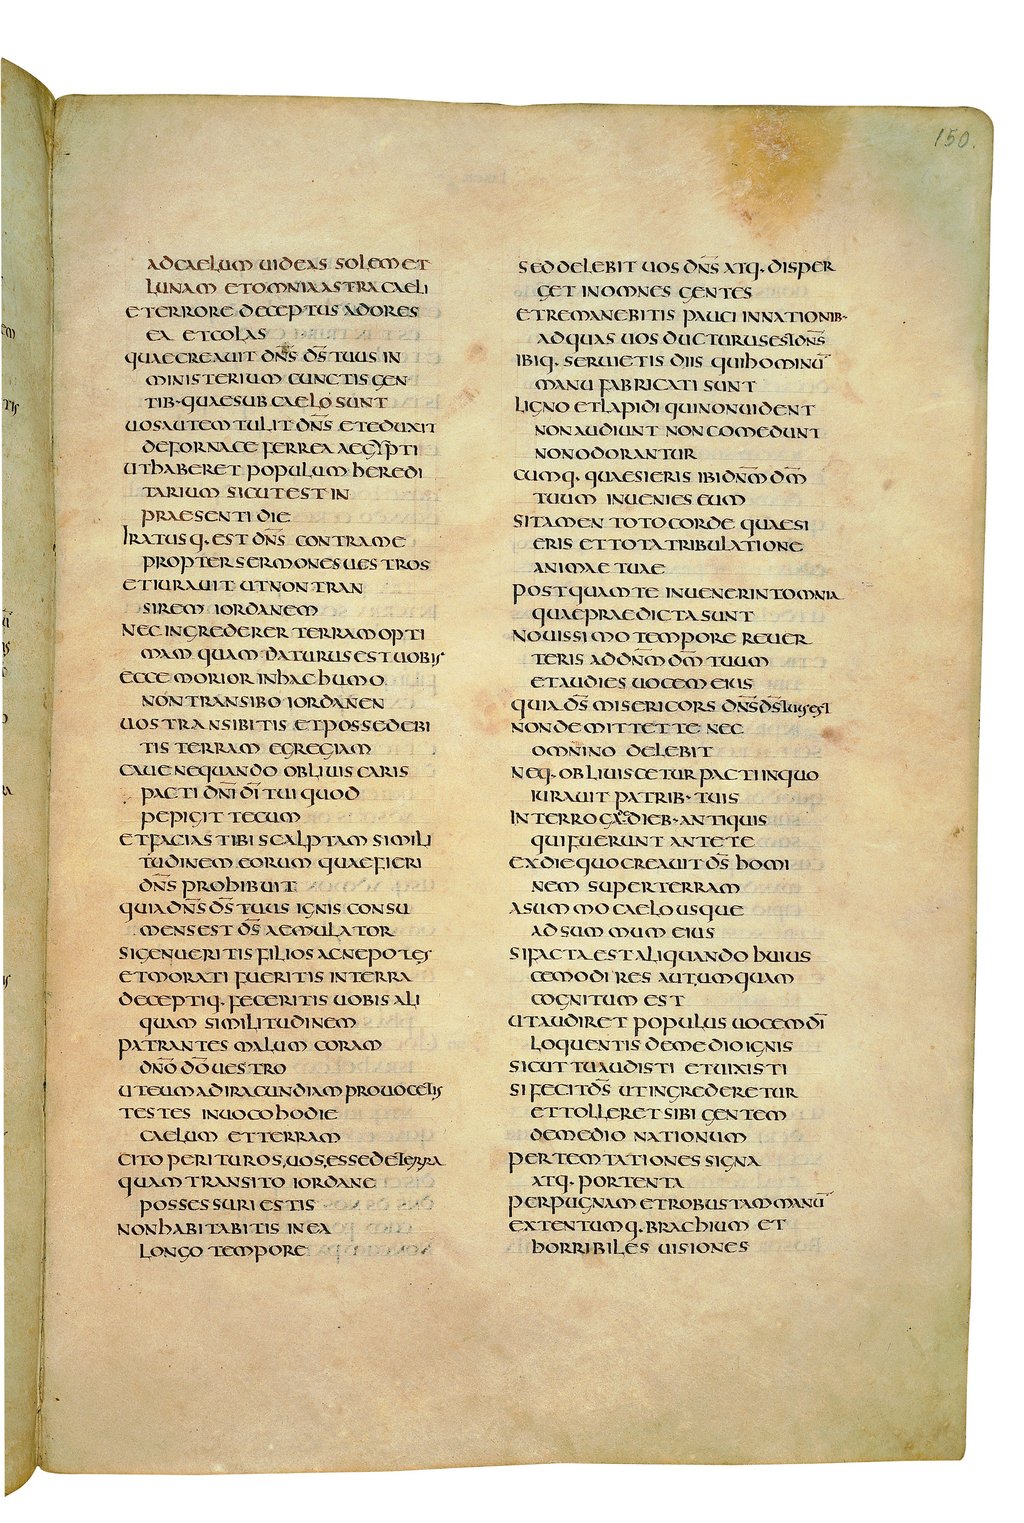 150.
ADCAELUM UIDEAS SOLEM ET
LUNAM ET OMNIA ASTRA CAELI
ET ERRORE DECEPTUS ADORES
EA ET COLAS
QUAE CREAUIT DN̅S D̅S TUUS IN
MINISTERIUM CUNCTIS GEN
TIB· QUAE SUB CAELO SUNT
UOS AUTEM TULIT DN̅S ET EDUXIT
DE FORNACE FERREA AEGYPTI
UT HABERET POPULUM HEREDI
TARIUM SICUT EST IN
PRAESENTI DIE
IRATUSQ· EST DN̅S CONTRA ME
PROPTER SERMONES UESTROS
ET IURAUIT UT NON TRAN
SIREM IORDANEM
NEC INGREDERER TERRAM OPTI
MAM QUAM DATURUS EST UOBIS
ECCE MORIOR IN HAC HUMO
NON TRANSIBO IORDANEN
UOS TRANSIBITIS ET POSSEDEBI
TIS TERRAM EGREGIAM
CAUE NEQUANDO OBLIUISCARIS
PACTI DN̅I D̅I TUI QUOD
PEPIGIT TECUM
ET FACIAS TIBI SCALPTAM SIMILI
TUDINEM EORUM QUAE FIERI
DN̅S PROHIBUIT
QUIA DN̅S D̅S TUUS IGNIS CONSU
MENS EST D̅S AEMULATOR
SI GENUERITIS FILIOS AC NEPOTES
ET MORATI FUERITIS IN TERRA
DECEPTIQ· FECERITIS UOBIS ALI
QUAM SIMILITUDINEM
PATRANTES MALUM CORAM
DN̅O D̅O UESTRO
UT EUM AD IRACUNDIAM PROUOCETIS
TESTES INUOCO HODIE
CAELUM ET TERRAM
CITO PERITUROS UOS ESSE DE TERRA
QUAM TRANSITO IORDANE
POSSESSURI ESTIS
NON HABITABITIS IN EA
LONGO TEMPORE
SED DELEBIT UOS DN̅S ATQ· DISPER
GET IN OMNES GENTES
ET REMANEBITIS PAUCI IN NATIONIB·
AD QUAS UOS DUCTURUS EST DN̅S
IBIQ· SERUIETIS DIIS QUI HOMINU̅
MANU FABRICATI SUNT
LIGNO ET LAPIDI QUI NON UIDENT
NON AUDIUNT NON COMEDUNT
NON ODORANTUR
CUMQ· QUAESIERIS IBI DN̅M D̅M
TUUM INUENIES EUM
SI TAMEN TOTO CORDE QUAESI
ERIS ET TOTA TRIBULATIONE
ANIMAE TUAE
POSTQUAM TE INUENERINT OMNIA
QUAE PRAEDICTA SUNT
NOUISSIMO TEMPORE REUER
TERIS AD DN̅M D̅M TUUM
ET AUDIES UOCEM EIUS
QUIA D̅S MISERICORS DN̅S D̅S TUUS EST
NON DEMITTET TE NEC
OMNINO DELEBIT
NEQ· OBLIUISCETUR PACTI IN QUO
IURAUIT PATRIB· TUIS
INTERROGA DE DIEB· ANTIQUIS
QUI FUERUNT ANTE TE
EX DIE QUO CREAUIT D̅S HOMI
NEM SUPER TERRAM
A SUMMO CAELO USQUE
AD SUMMUM EIUS
SI FACTA EST ALIQUANDO HUIUS
CEMODI RES AUT UMQUAM
COGNITUM EST
UT AUDIRET POPULUS UOCEM D̅I
LOQUENTIS DE MEDIO IGNIS
SICUT TU AUDISTI ET UIXISTI
SI FECIT D̅S UT INGREDERETUR
ET TOLLERET SIBI GENTEM
DE MEDIO NATIONUM
PER TEMTATIONES SIGNA
ATQ· PORTENTA
PER PUGNAM ET ROBUSTAM MANU̅
EXTENTUMQ· BRACHIUM ET
HORRIBILES UISIONES